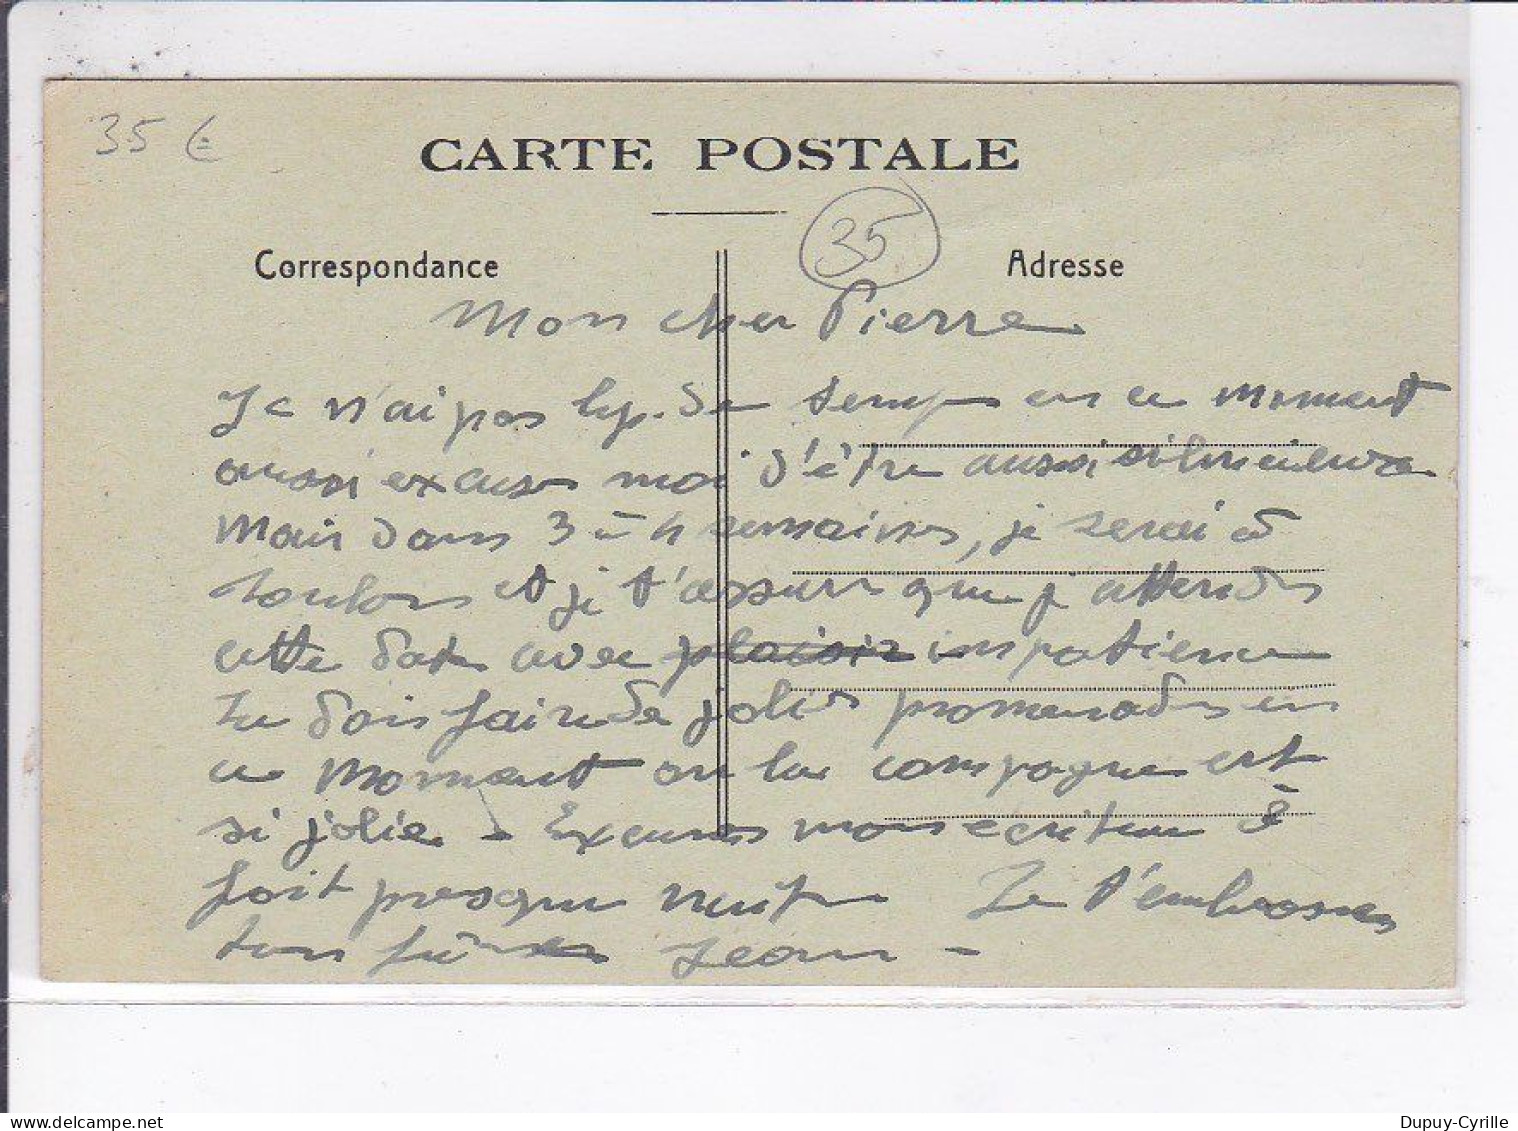 35 €
CARTE POSTALE
35
Correspondance
Adresse
Mon cher Pierre
Je n'ai pas bcp. de temps en ce moment
aussi excuses moi d'être aussi silencieux
Mais dans 3 à 4 semaines, je serai à
Toulon et je t'assure que j'attends
cette date avec plaisir impatience
Tu dois faire de jolies promenades en
ce moment où la campagne est
si jolie - Excuses mon écriture
fait presque Je t'embrasse
ton frère Jean -
Dupuy-Cyrille